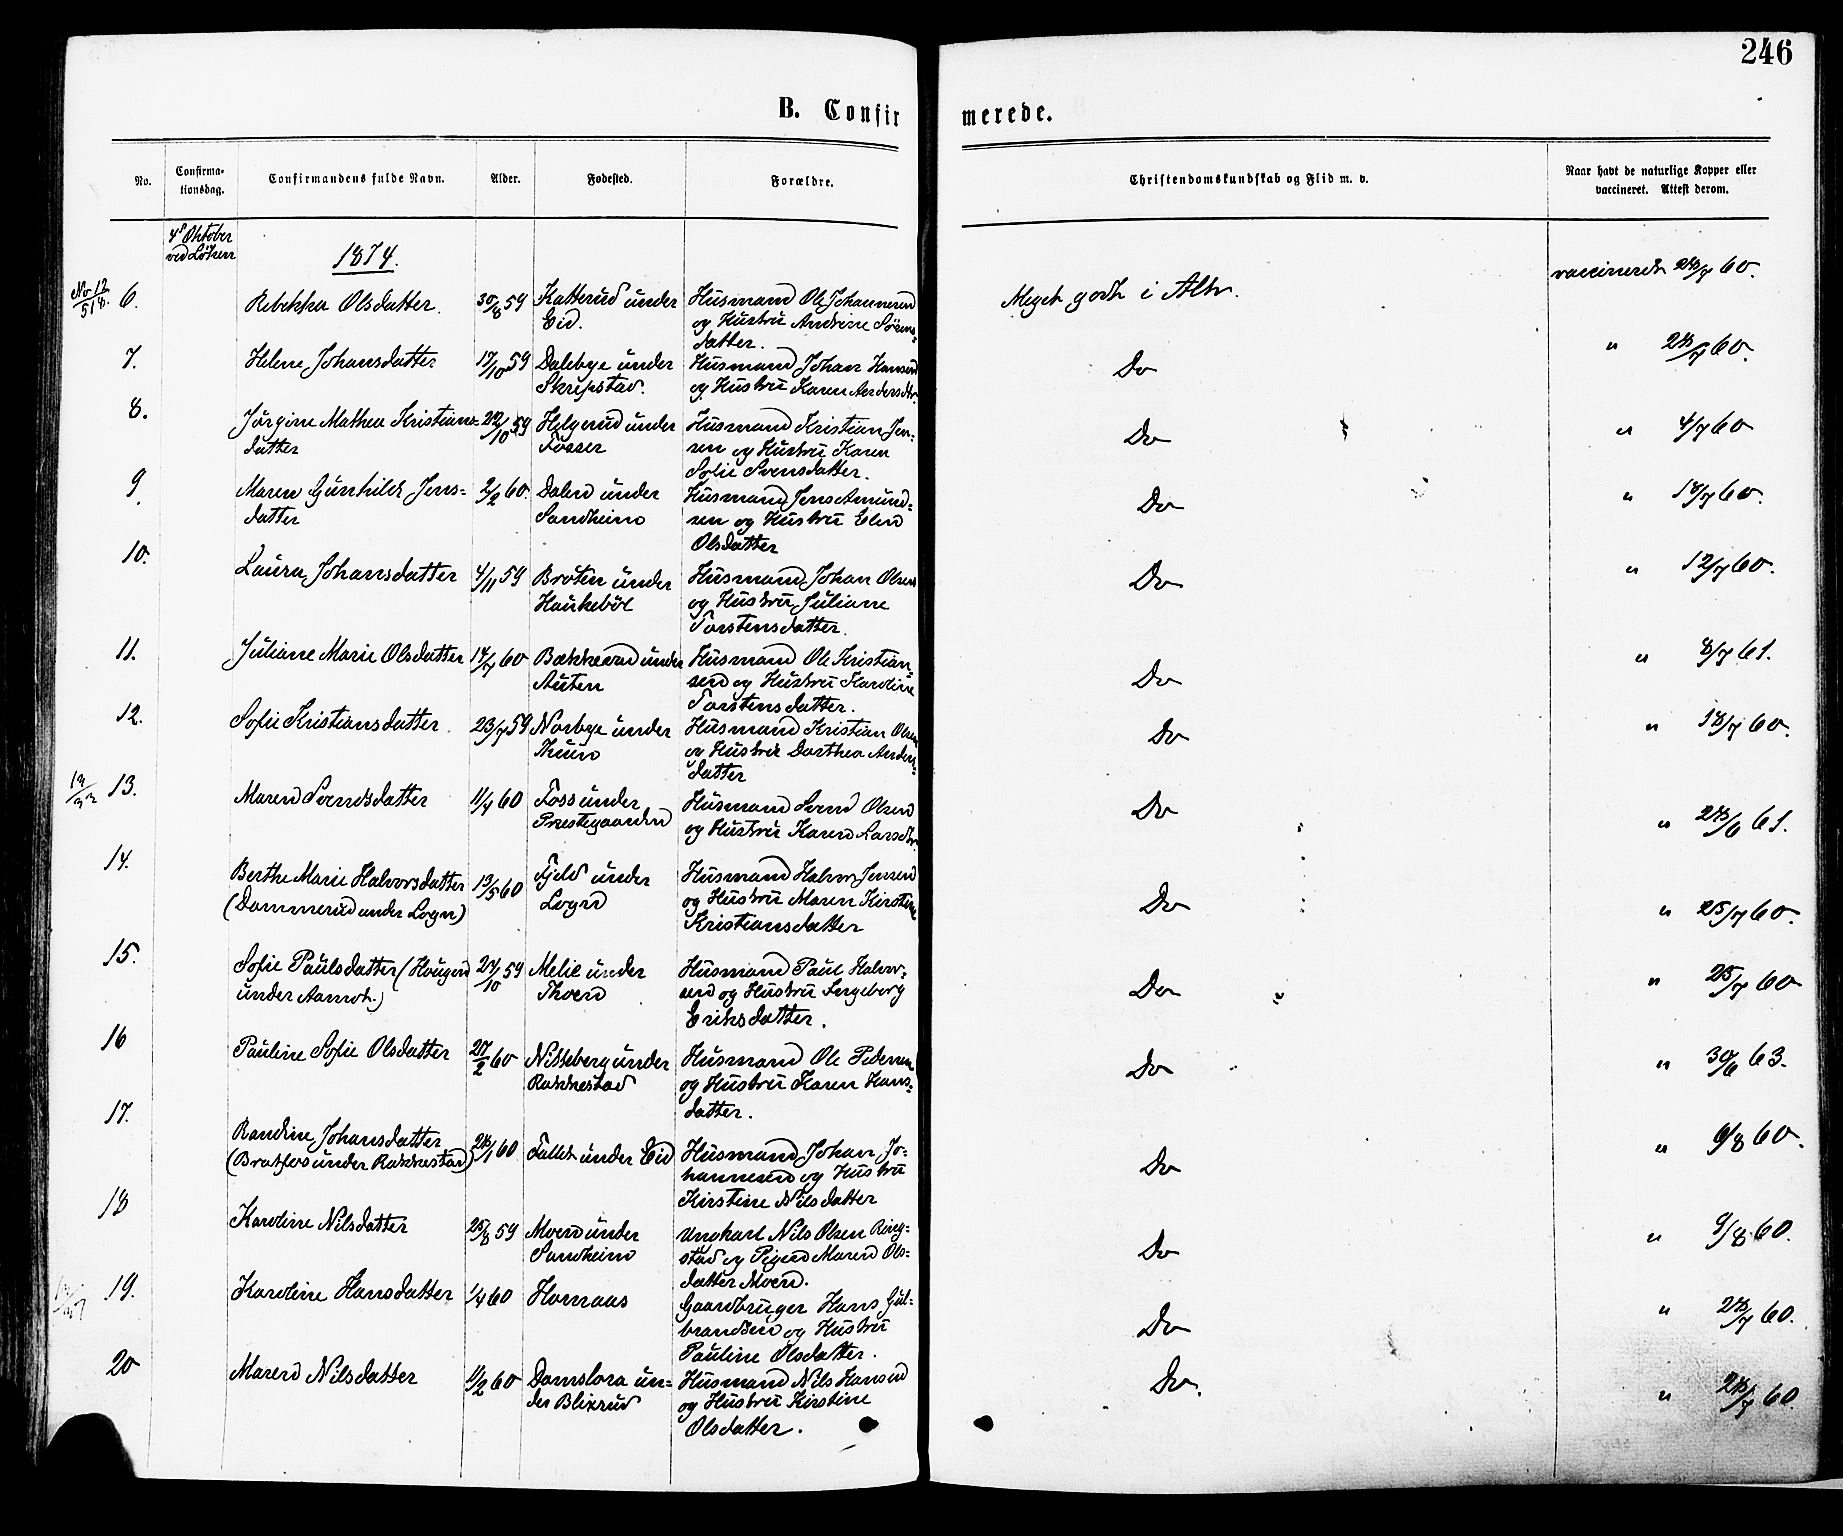 246
B. Confirmerede.
No.
Confirma-
tionsdag.
Confirmandens fulde Navn.
Alder.
Fødested.
Forældre.
Christendomskundskab og Flid m. v.
Naar havt de naturlige Kopper eller
vaccineret. Attest derom.
4de Oktober
ved Løken
1874.
No 12
518.
6.
Rebekka Olsdatter.
30/8 59
Katterud under
Eid.
Husmand Ole Johannesen
og Hustru Andrine Sørens-
datter.
Meget godt i Alt.
vaccineret 24/7 60.
7.
Helene Johansdatter
17/10 59
Dalebye under
Skripstad.
Husmand Johan Hansen
og Hustru Karen Andersdtr.
Do
" 24/7 60.
8.
Jørgine Mathea Kristians-
datter
22/10 59
Helgerud under
Fosser
Husmand Kristian Jen-
sen og Hustru Karen
Sofie Svensdatter.
Do
" 4/7 60
9.
Maren Gunhild Jens-
datter
2/2 60.
Dalen under
Sandheim
Husmand Jens Amund-
sen og Hustru Elen
Olsdatter
Do
" 18/7 60.
10.
Laura Johansdatter
4/11 59
Broten under
Haukebøl
Husmand Johan Olsen
og Hustru Juliane
Torstensdatter.
Do
" 12/7 60.
11.
Juliane Marie Olsdatter
14/7 60
Bækkevad under
Auten
Husmand Ole Kristian-
sen og Hustru Karoline
Torstensdatter.
Do
" 8/7 61.
12.
Sofie Kristiansdatter.
23/7 59
Norbye under
Thuen
Husmand Kristian Olsen
og Hustru Dorthea Anders-
datter
Do
" 18/7 60.
13.
Maren Svendsdatter
11/7 60
Foss under
Præstegaarden
Husmand Svend Olsen
og Hustru Karen Larsdtr.
Do
" 23/6 61.
14.
Berthe Marie Halvorsdatter
(Dammerud under Logn)
13/5 60
Fjeld under
Logn
Husmand Halvor Jensen
og Hustru Maren Kirstine
Kristiansdatter
Do
" 25/7 60.
15.
Sofie Paulsdatter (Haugen
under Aamot.)
24/10 59
Melie under
Thoen
Husmand Paul Halvor-
sen og Hustru Ingeborg
Eriksdatter.
Do
" 25/7 60
16
Pauline Sofie Olsdatter
27/2 60
Nitteberg under
Rakkestad
Husmand Ole Pedersen
og Hustru Karen Hans-
datter.
Do
" 30/6 63.
17.
Randine Johansdatter
(Bratfos under Rakkestad)
28/1 60
Fallet under Eid
Husmand Johan Jo-
hannesen og Hustru
Kirstine Nilsdatter
Do
" 6/8 60.
18
Karoline Nilsdatter
25/8 59
Moen under
Sandheim
Ungkarl Nils Olsen Ring-
stad og Pigen Maren Ols-
datter Moen.
Do
" 9/8 60.
19.
Karoline Hansdatter
1/4 60
Homaas
Gaardbruger Hans Gul-
brandsen og Hustru
Pauline Olsdatter.
Do
" 23/7 60.
20
Maren Nilsdatter
11/2 60
Damslora un-
der Blixrud
Husmand Nils Hansen
og Hustru Kirstine
Olsdatter.
Do.
" 23/7 60